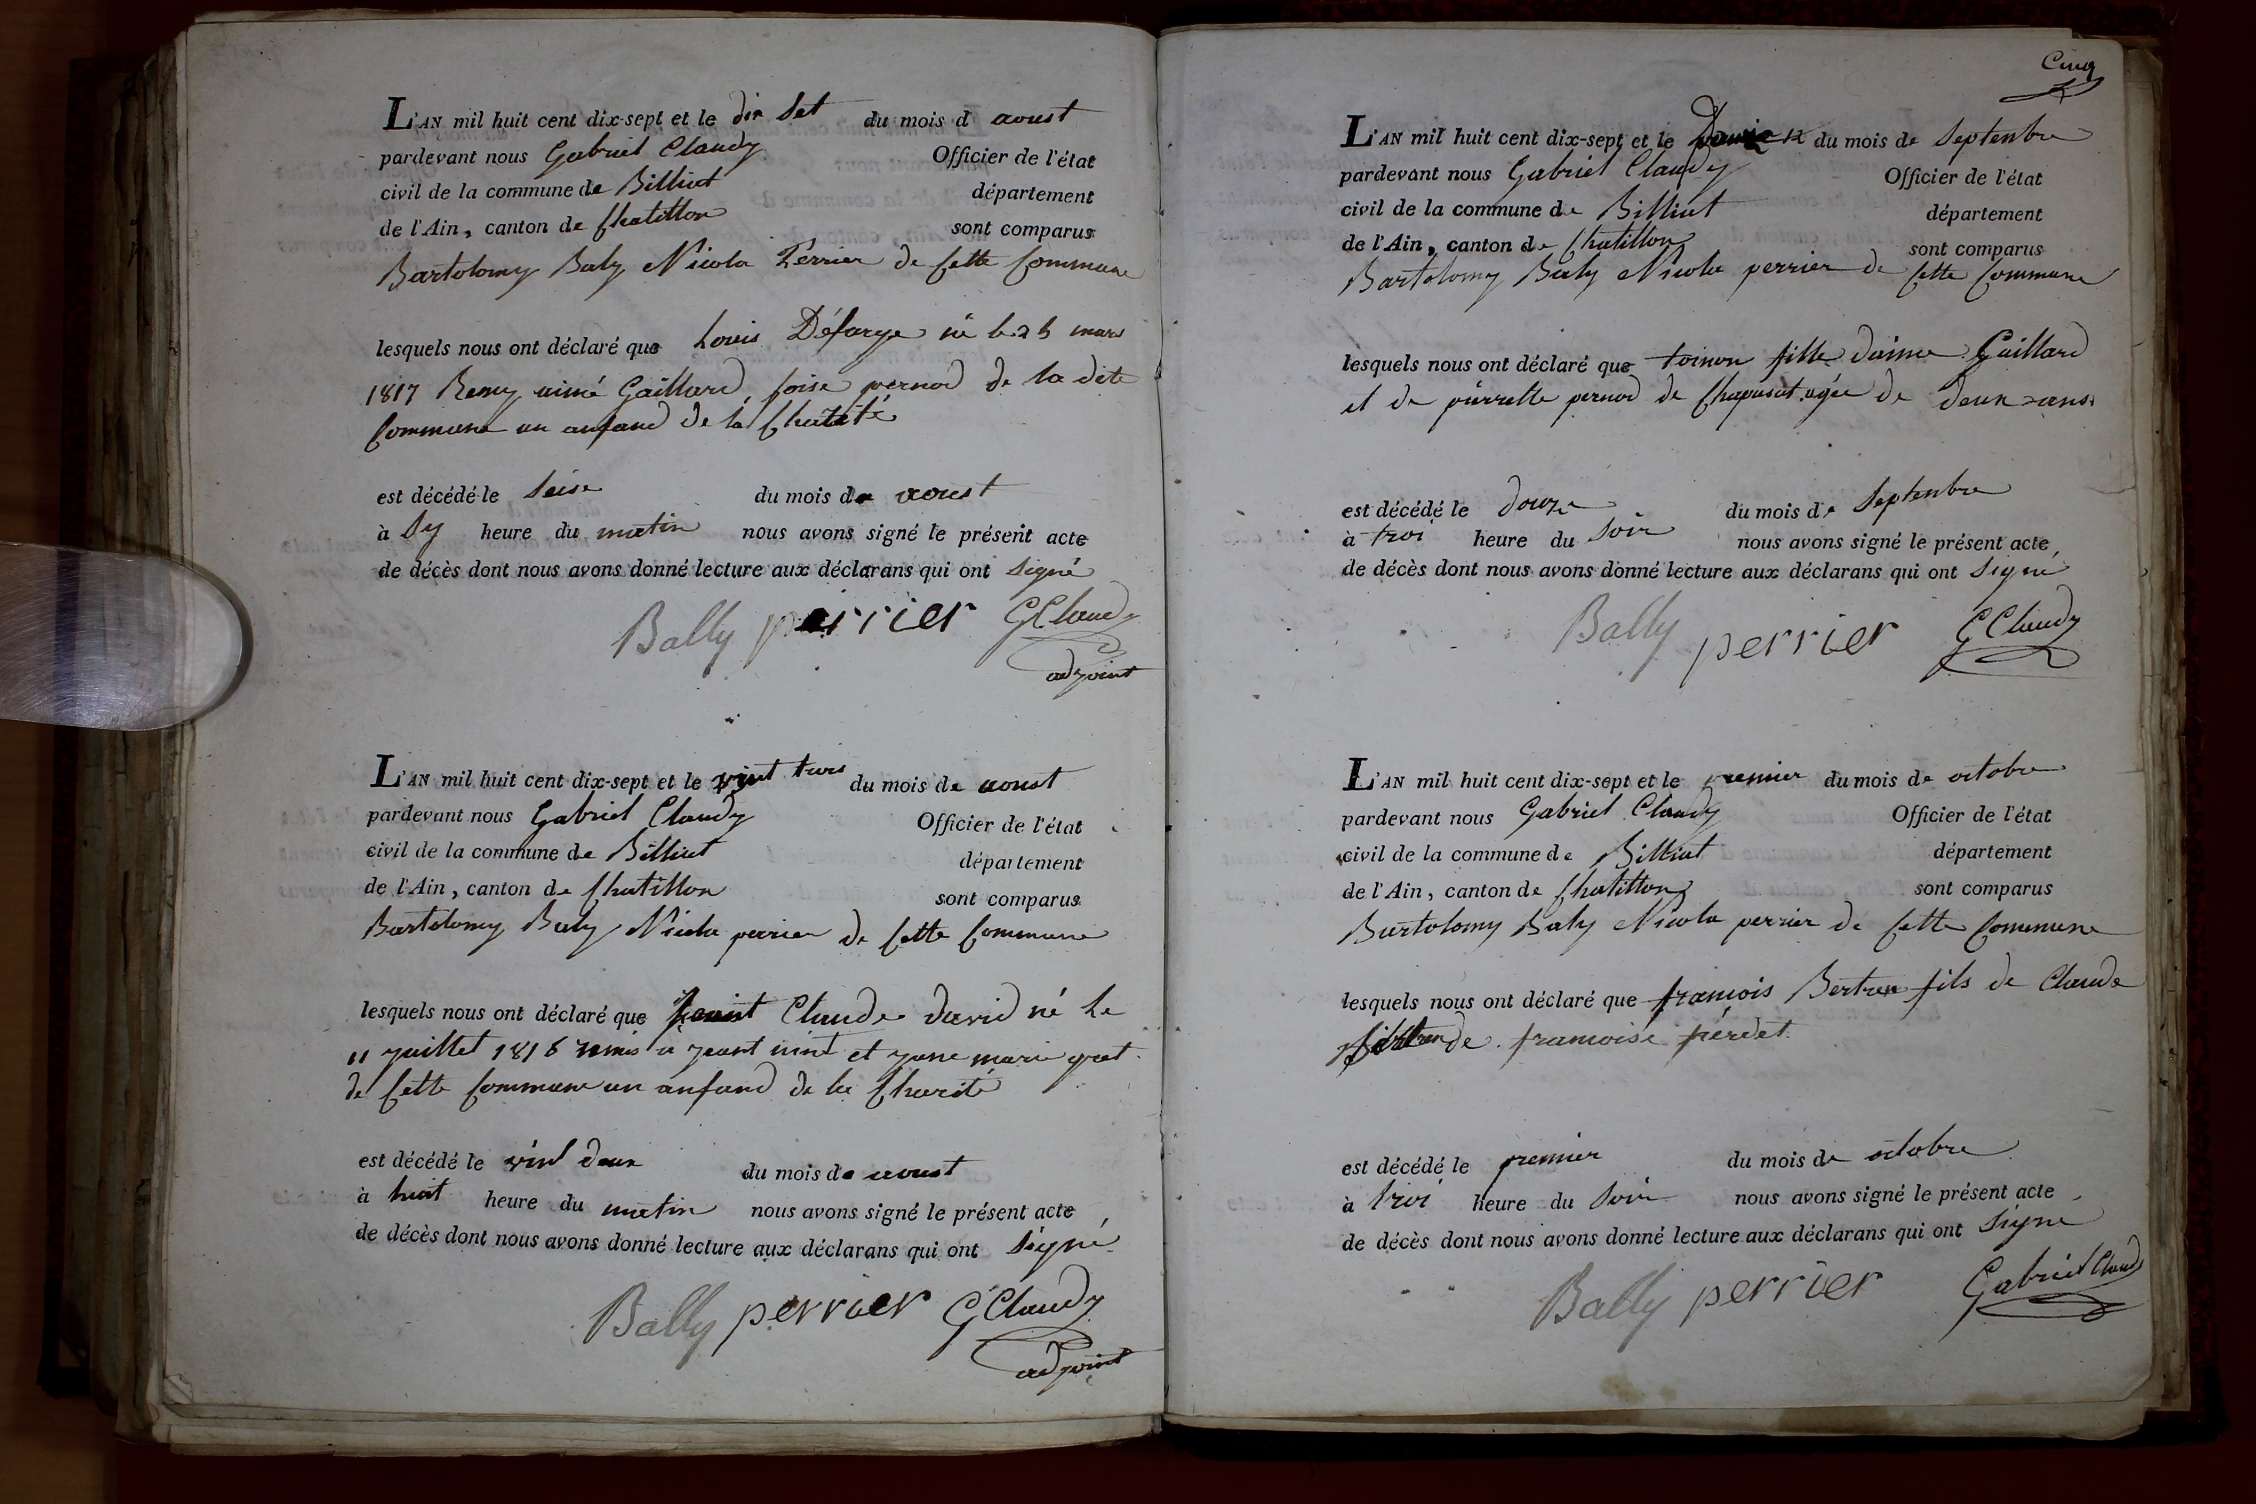 L'AN mil huit cent dix-sept et le dix Set du mois d aoust
pardevant nous Gabriel Claudy Officier de l'état
civil de la commune de Billiat département
de l'Ain, canton de Chatillon sont comparus
Bartolomy Baly Nicola Perrier de Cette Commune
lesquels nous ont déclaré que Louis Défarge né le 25 mars
1817 aimé Gaillard pernod de la dite
Commune un anfand de la Charité
est décédé le Seise du mois de aoust
à Sy heure du matin nous avons signé le présent acte
de décès dont nous avons donné lecture aux déclarans qui ont Signé
Bally perrier GClaudy
adjoint
L'AN mil huit cent dix-sept et le vint trois du mois de aoust
pardevant nous Gabriel Claudy Officier de l'état
civil de la commune de Billiat département
de l'Ain, canton de Chatillon sont comparus
Bartolomy Baly Nicola perrier de Cette Commune
lesquels nous ont déclaré que Claude david né Le
11 juillet 1816 remis a et jane marie
de Cette Commune un anfand de la Charité
est décédé le vint deux du mois de aoust
à huit heure du matin nous avons signé le présent acte
de décès dont nous avons donné lecture aux déclarans qui ont Signé
Bally perrier GClaudy
adjoint
Cinq
L'AN mil huit cent dix-sept et le 12 du mois de Septenbre
pardevant nous Gabriel Claudy Officier de l'état
civil de la commune de Billiat département
de l'Ain, canton de Chatillon sont comparus
Bartolomy Baly Nicola perrier de Cette Commune
lesquels nous ont déclaré que toinon fille daime Gaillard
et de pierrette pernod de agée de deux ans
est décédé le douze du mois de Septenbre
à troi heure du Soir nous avons signé le présent acte
de décès dont nous avons donné lecture aux déclarans qui ont Signé
Bally perrier GClaudy
L'AN mil huit cent dix-sept et le premier du mois de octobre
pardevant nous Gabriel Claudy Officier de l'état
civil de la commune de Billiat département
de l'Ain, canton de Chatillon sont comparus
Bartolomy Baly Nicola perrier de Cette Commune
lesquels nous ont déclaré que francois Bertran fils de Claude
de francoise
est décédé le premier du mois de octobre
à troi heure du Soir nous avons signé le présent acte
de décès dont nous avons donné lecture aux déclarans qui ont Signe
Bally perrier Gabriel Claudy